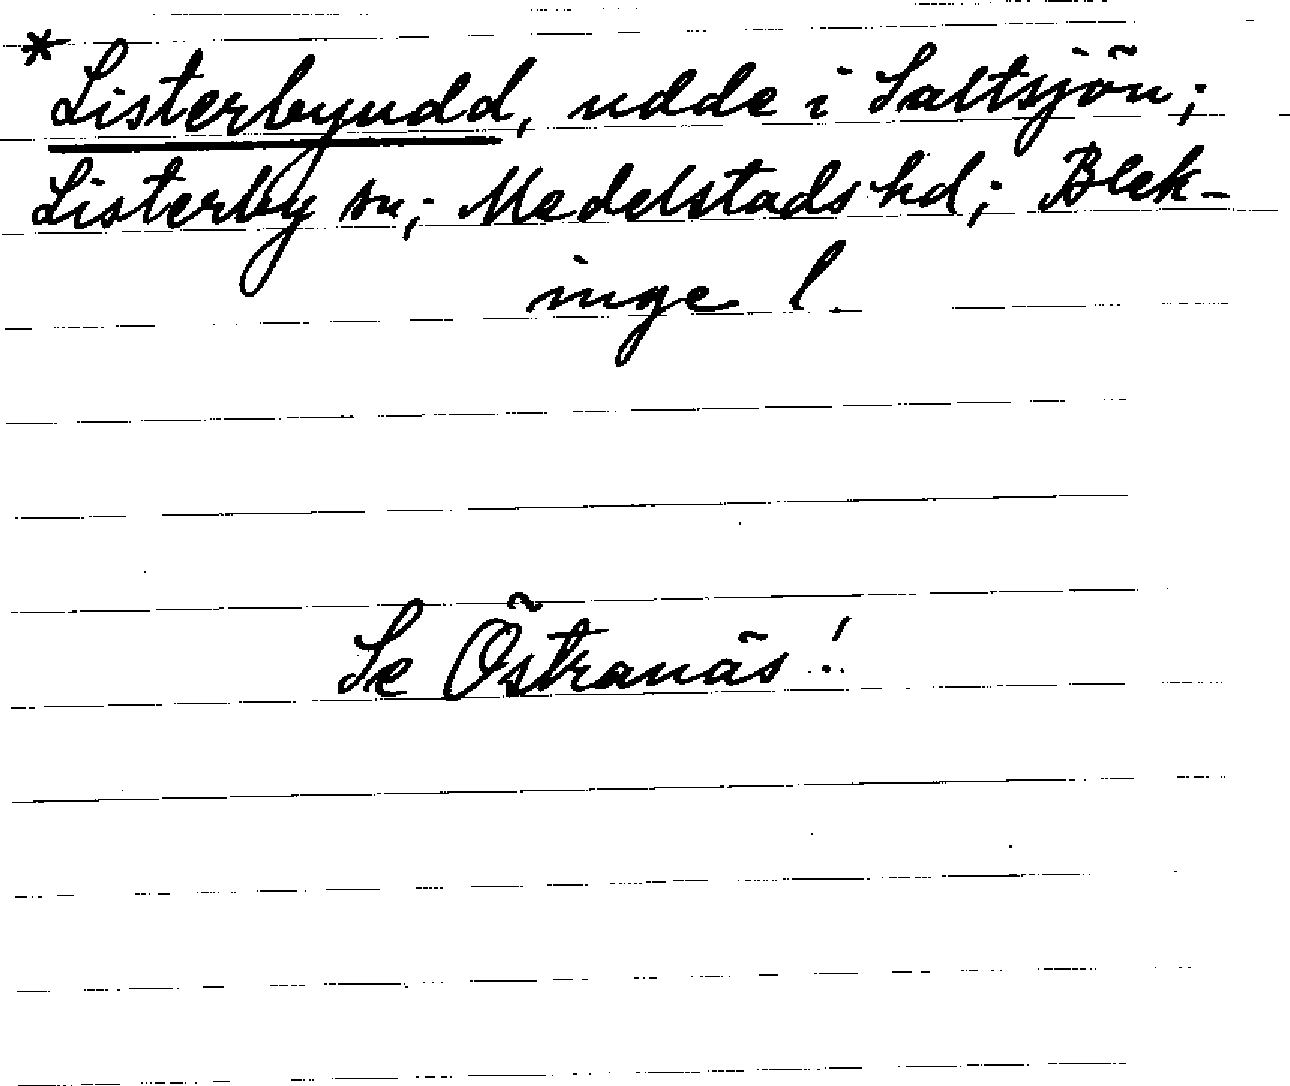 * Listerbyudd, udde i Saltsjön;
Listerby sn; Medelstads hd; Blek-
inge l.
Se Östranäs!